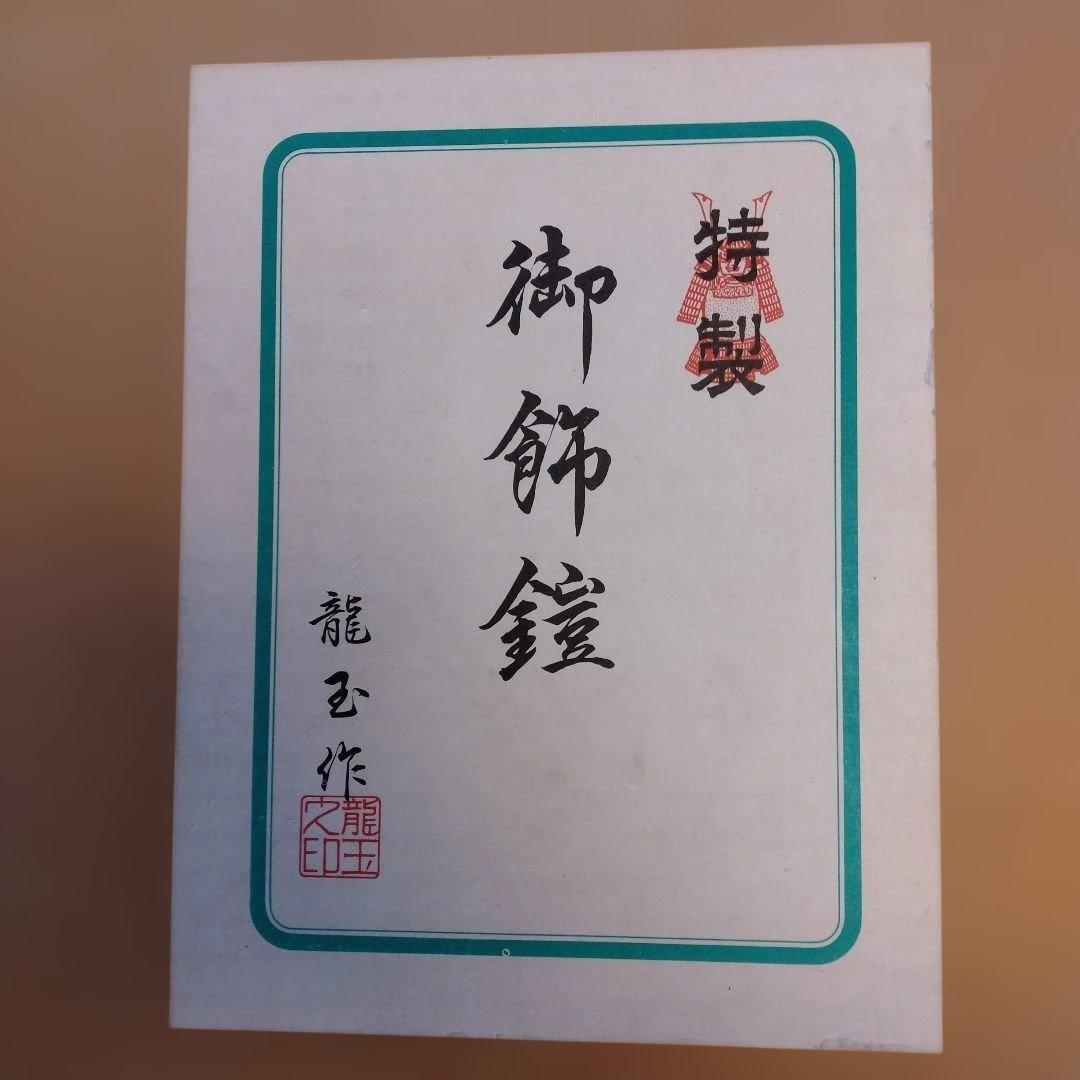 特製
御飾鎧
龍玉作
龍玉之印